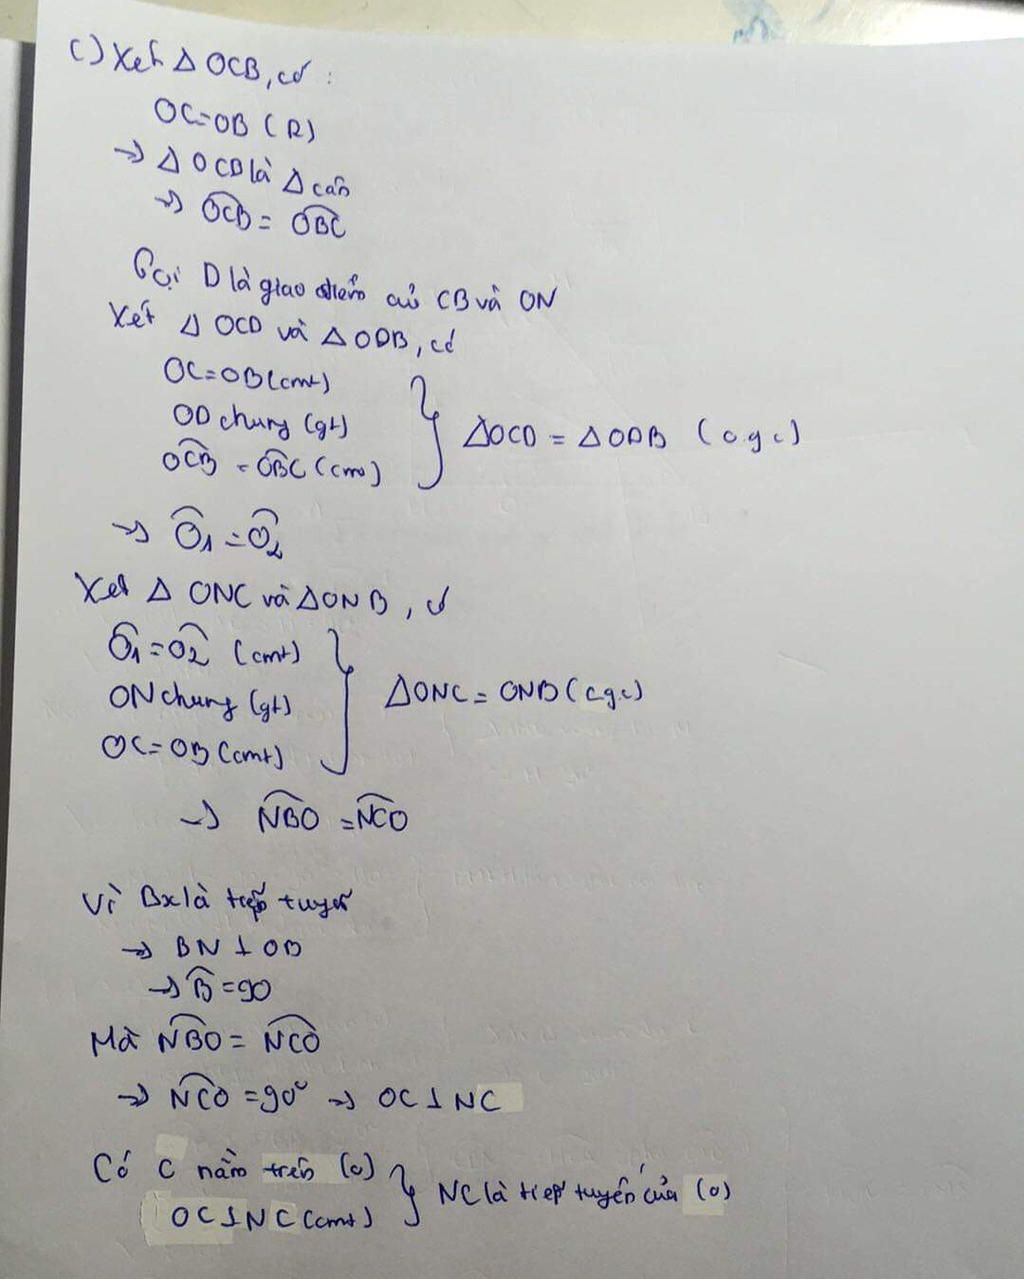 c) Xét Δ OCB, có :
OC=OB (R)
→ Δ OCB là Δ cân
→ OCB = OBC
Gọi D là giao điểm củ CB và ON
Xét Δ OCD và Δ ODB, có
OC=OB (cmt)
OD chung (gt)
OCB = OBC (cm) } ΔOCD = ΔODB (c.g.c)
→ O1 = O2
Xét Δ ONC và ΔONB, có
O1 = O2 (cmt)
ON chung (gt)
OC=OB (cmt) } ΔONC = ONB (c.g.c)
→ NBO = NCO
Vì Bx là tiếp tuyến
→ BN ⊥ OB
→ B = 90
Mà NBO = NCO
→ NCO = 90° → OC ⊥ NC
Có C nằm trên (O)
OC⊥NC (cmt) } NC là tiếp tuyến của (O)